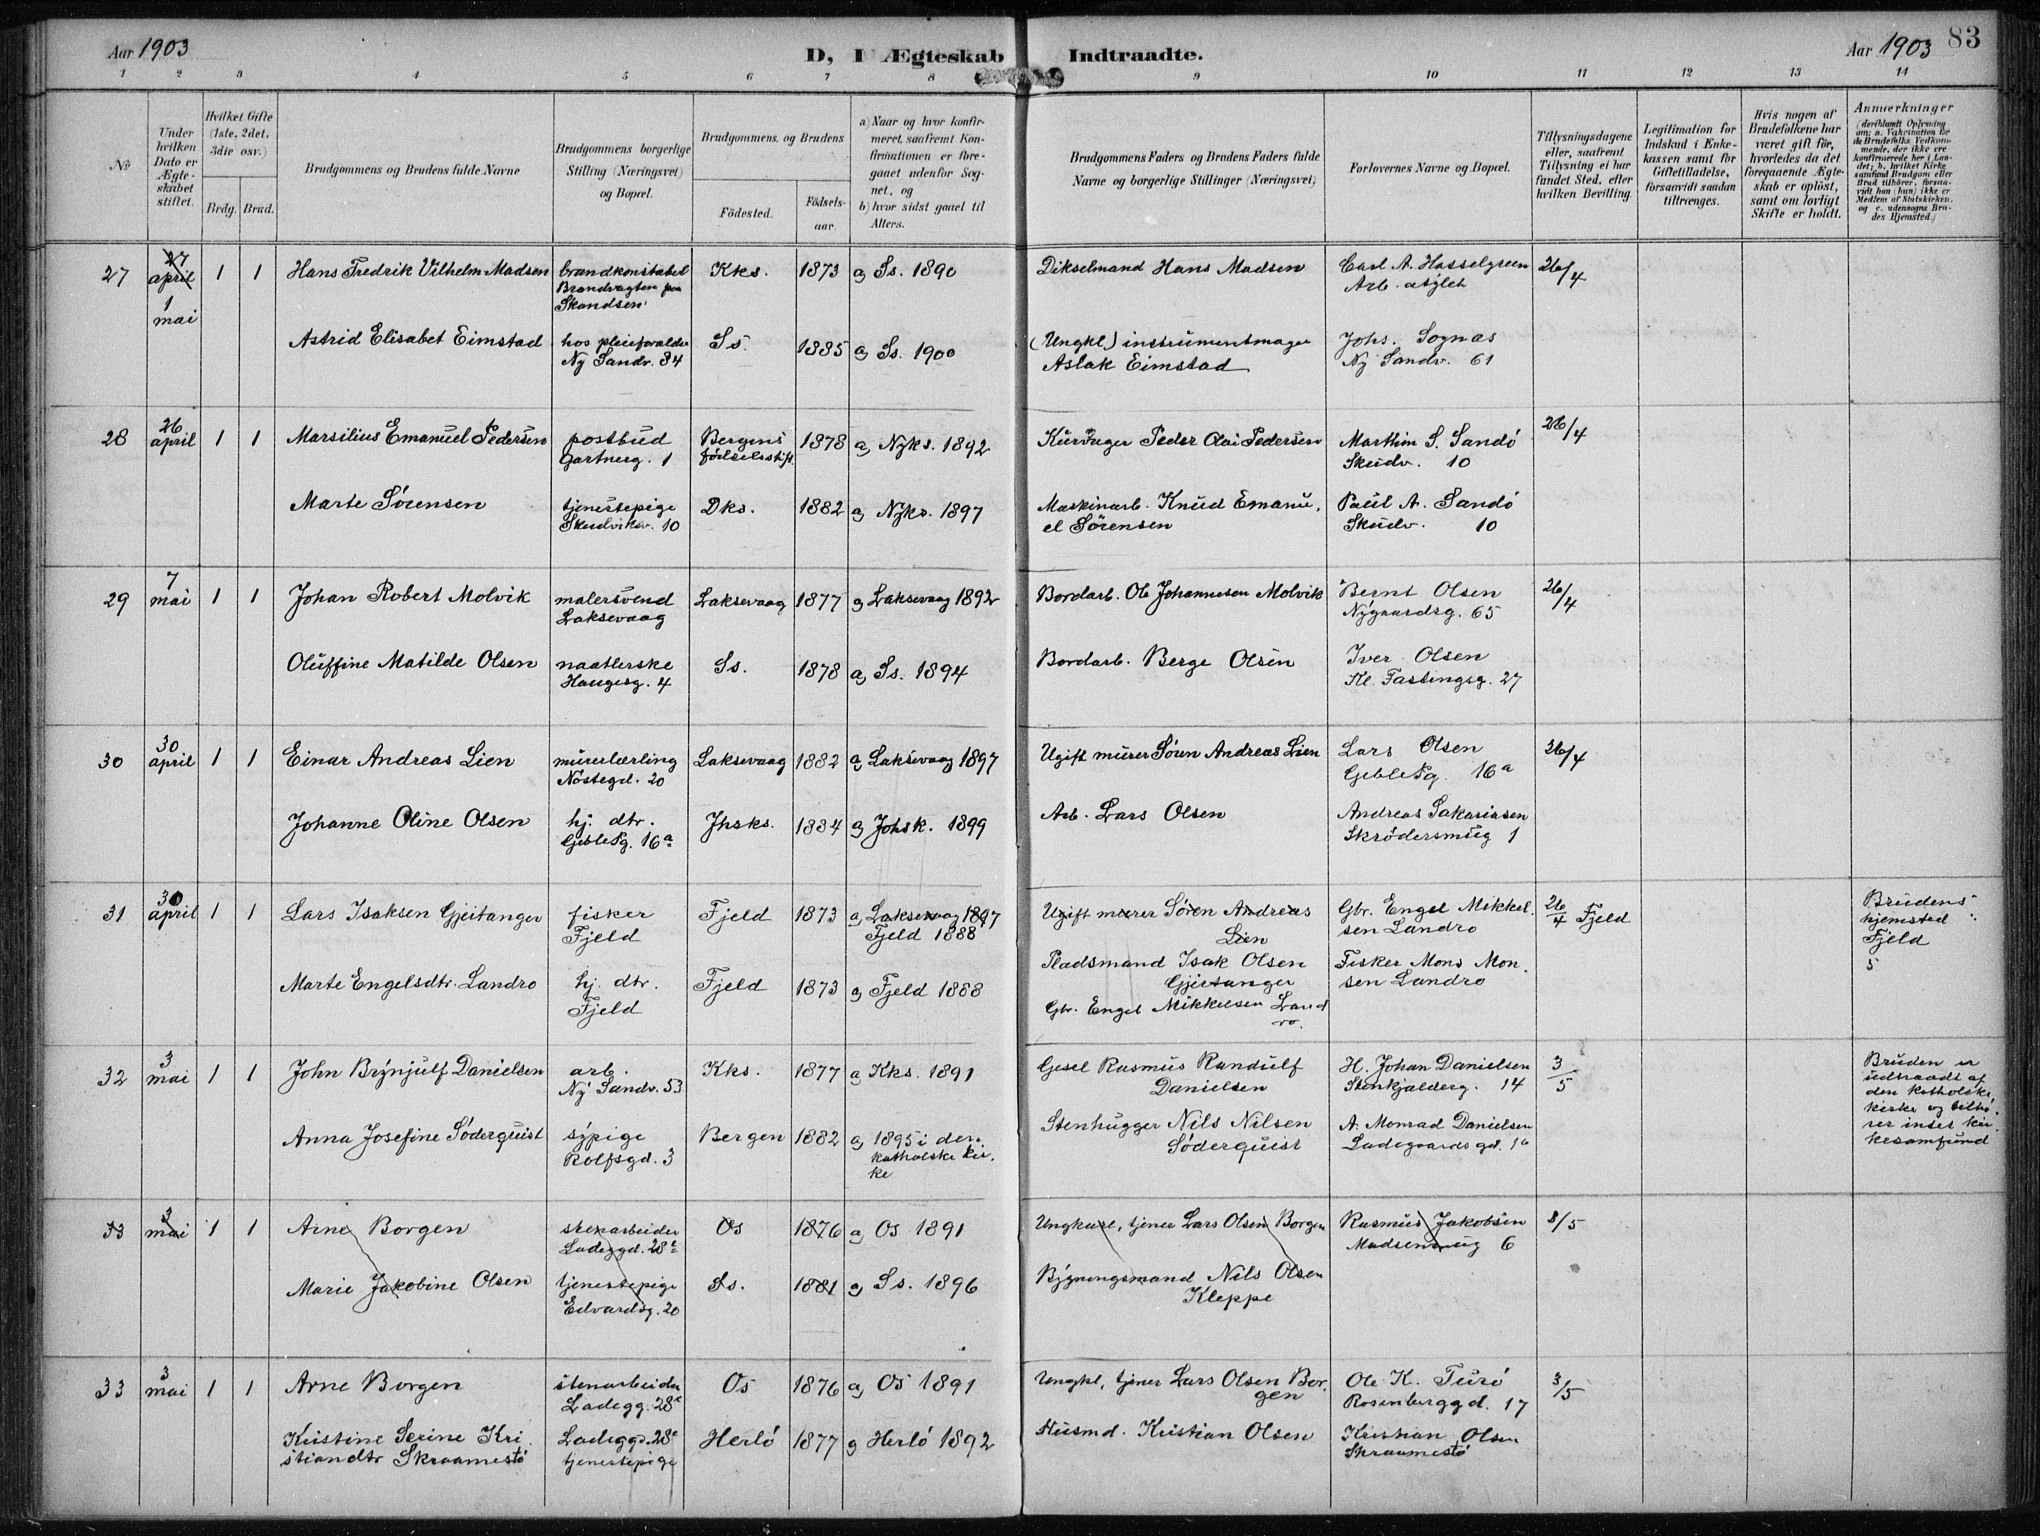 83
Aar 1903
D, I Ægteskab Indtraadte.
Aar 1903
1 2 3 4 5 6 7 8 9 10 11 12 13 14
No
Under hvilken Dato er Ægteskabet stiftet.
Hvilket Gifte (1ste, 2det, 3die osv.)
Brdg. Brud.
Brudgommens og Brudens fulde Navne
Brudgommens borgerlige Stilling (Næringsvei) og Bopæl.
Brudgommens og Brudens
Födested.
Födsels-aar.
a) Naar og hvor konfirmeret, saafremt Konfirmationen er foregaaet udenfor Sognet, og
b) hvor sidst gaaet til Alters.
Brudgommens Faders og Brudens Faders fulde Navne og borgerlige Stillinger (Næringsvei)
Forlovernes Navne og Bopæl.
Tillysningsdagene eller, saafremt Tillysning ei har fundet Sted, efter hvilken Bevilling.
Legitimation for Indskud i Enkekassen samt for Giftetilladelse, forsaavidt saadan tiltrænges.
Hvis nogen af Brudefolkene har været gift för, hvorledes da det foregaaende Ægteskab er oplöst, samt om lovligt Skifte er holdt.
Anmærkninger
(deriblandt Oplysning om: a. Vakcination for de Brudefolks Vedkommende, der ikke ere konfirmerede her i Landet; b. hvilket Kirkesamfund Brudgom eller Brud tilhörer, forsaavidt han (hun) ikke er Medlem af Statskirken, og c. udensogns Brudes Hjemsted.)
27
27 april
1 mai
1 1
Hans Fredrik Vilhelm Madsen
brandkonstabel
Brandvagten paa
Skandsen
Kks. 1873 a) Ss. 1890
Dikselmand Hans Madsen
Carl A. Hasselgreen
Arb. asylet
26/4
Astrid Elisabet Eimstad
hos pleieforældre
Ny Sandv. 84
Ss. 1885 a) Ss. 1900
(Ungkl) instrumentmager
Aslak Eimstad
Johs. Sognas
Ny Sandv. 61
28
26 april
1 1
Marsilius Emanuel Pedersen
postbud
Gartnerg. 1
Bergens
fødselsstift.
1878 a) Nyks. 1892
Peder Pedersen
Marthin S. Sandö
Skudv. 10
26/4
Marte Sørensen
tjenestepige
Skudvikv. 10
Dks. 1882 a) Nyks. 1897
Maskinarb. Knud Emanu,
el Sörensen
Paul A. Sandö
Skudv. 10
29
7 mai
1 1
Johan Robert Molvik
malersvend
Laksevaag
Laksevaag 1877 a) Laksevaag 1892
Bordarb. Ole Johannesen Molvik
Bernt Olsen
Nygaardsg. 65
26/4
Oluffine Matilde Olsen
naatlerske
Haugesg. 4
Ss. 1878 a) Ss. 1894
Bordarb. Berge Olsen
Iver Olsen
Kl. Fastingsg. 27
30
30 april
1 1
Einar Andreas Lien
murerlærling
Nöstegd. 20
Laksevaag 1882 a) Laksevaag 1897
Ugift murer Sören Andreas Lien
Lars Olsen
Gebles g. 16a
26/4
Johanne Oline Olsen
hj. dtr.
Gebles g. 16a
Jhsks. 1884 a) Johsk. 1899
Arb. Lars Olsen
Andreas Sakariasen
Skrödersmug 1
31
30 april
1 1
Lars Isaksen Gjeitanger
fisker
Fjeld
Fjeld 1873 a) Laksevaag 1897
Fjeld 1888
Ugift murer Sören Andreas
Lien
Pladsmand Isak Olsen
Gjeitanger
Gbr. Engel Mikkel
sen Landro
26/4 Fjeld
Brudens
hjemsted :
Fjeld
5
Marte Engelsdtr. Landro
hj. dtr.
Fjeld
Fjeld 1873 a) Fjeld 1888
Gbr. Engel Mikkelsen Land
ro.
Fisker Mons Mon,
sen Landro
32
3 mai
1 1
John Brynjulf Danielsen
arb.
Ny Sandv. 53
Kks. 1877 a) Kks. 1891
Gesel Rasmus Randulf
Danielsen
H. Johan Danielsen
Stenkjelderg. 14
3/5
Bruden er
udtraadt af
den katholske
kirke og tilhö,
rer intet kir
kesamfund
Anna Josefine Söderquist
sypige
Rolfsgd. 3
Bergen 1882 a) 1895 i den
katholske kir,
ke
Stenhugger Nils Nilsen
Söderquist
A. Monrad Danielsen
Ladegaardsgd.
33
3 mai
1 1
Arne Borgen
stenarbeider
Ladeggd. 28
Os 1876 a) Os 1891
Ungkarl, tjener Lars Olsen Borgen
Rasmus Jakobsen
Madsensmug 6
3/5
Marie Jakobine Olsen
tjenestepige
Edvardsg. 20
Ss. 1881 a) Ss. 1896
Bygningsmand Nils Olsen
Kleppe
33
3 mai
1 1
Arne Borgen
stenarbeider
Ladegg. 28
Os 1876 a) Os 1891
Ungkl, tjener Lars Olsen Bor,
gen
Ole K. Turö
Rosenberggd. 17
3/5
Kristine Serine Kri
stiandtr Skraamestö
Ladeggd. 28
tjenestepige
Herlö 1877 a) Herlö 1892
Husmd. Kristian Olsen
Kristian Olsen
Skraamestö